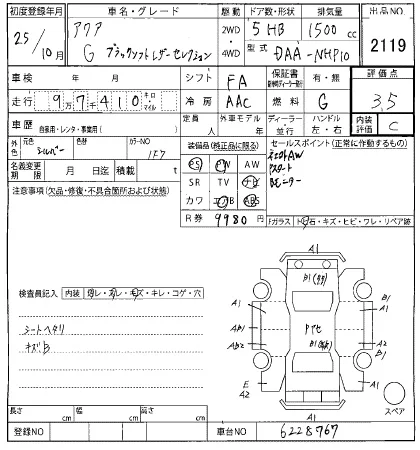 初度登録年月 車名・グレード 駆動 ドア数・形状 排気量 出品NO
25/10月 アクア 2WD・4WD 5 HB 1500cc 2119
G ブラックソフトレザーセレクション 型式 DAA-NHP10
車検 年 月 シフト FA 保証書 有・無 評価点
走行 9万7千410 キロ・マイル 冷房 AAC 燃料 G 3.5
車歴 自家用・レンタ・事業用( ) 定員 人 外車モデル 年 ディーラー・並行 ハンドル 左・右 内装評価 C
外色 元色 シルバー 色替 カラーNO 1F7 装備品(純正品に限る) セールスポイント(正常に作動するもの)
PS PW AW 純正AW
名義変更期限 月 日迄 積載 t SR TV ナビ Pスタート
注意事項(欠品・修復・不具合箇所および状態) カワ エアB ABS Bモニター
R券 9980円 Fガラス トビ石・キズ・ヒビ・ワレ・リペア跡
A1
B1
検査員記入 内装 汚レ・スレ・キズ・キレ・コゲ・穴
A1 B1
A1
シートヘタリ AB1 Pアセ
キズB AB2 B1 A2
E A2 A1
A1
スペア
長さ cm 幅 cm 高さ cm
登録NO 車台NO 6228767